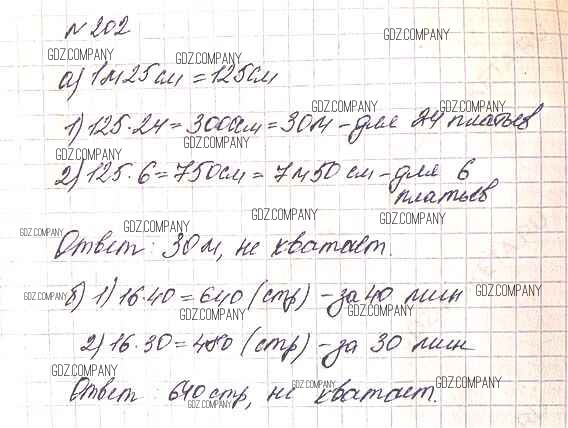 № 202
GDZ.COMPANY
GDZ.COMPANY GDZ.COMPANY
а) 1м 25 см = 125 см
GDZ.COMPANY GDZ.COMPANY
1) 125·24 = 3000см = 30м - для 24 платьев
GDZ.COMPANY GDZ.COMPANY
2) 125·6 = 750 см = 7м 50 см - для 6
платьев
GDZ.COMPANY GDZ.COMPANY GDZ.COMPANY GDZ.COMPANY
Ответ: 30м, не хватает.
GDZ.COMPANY GDZ.COMPANY
б) 1) 16·40 = 640 (стр) - за 40 мин
GDZ.COMPANY GDZ.COMPANY
2) 16·30 = 480 (стр) - за 30 мин
GDZ.COMPANY GDZ.COMPANY GDZ.COMPANY
Ответ: 640 стр, не хватает.
GDZ.COMPANY